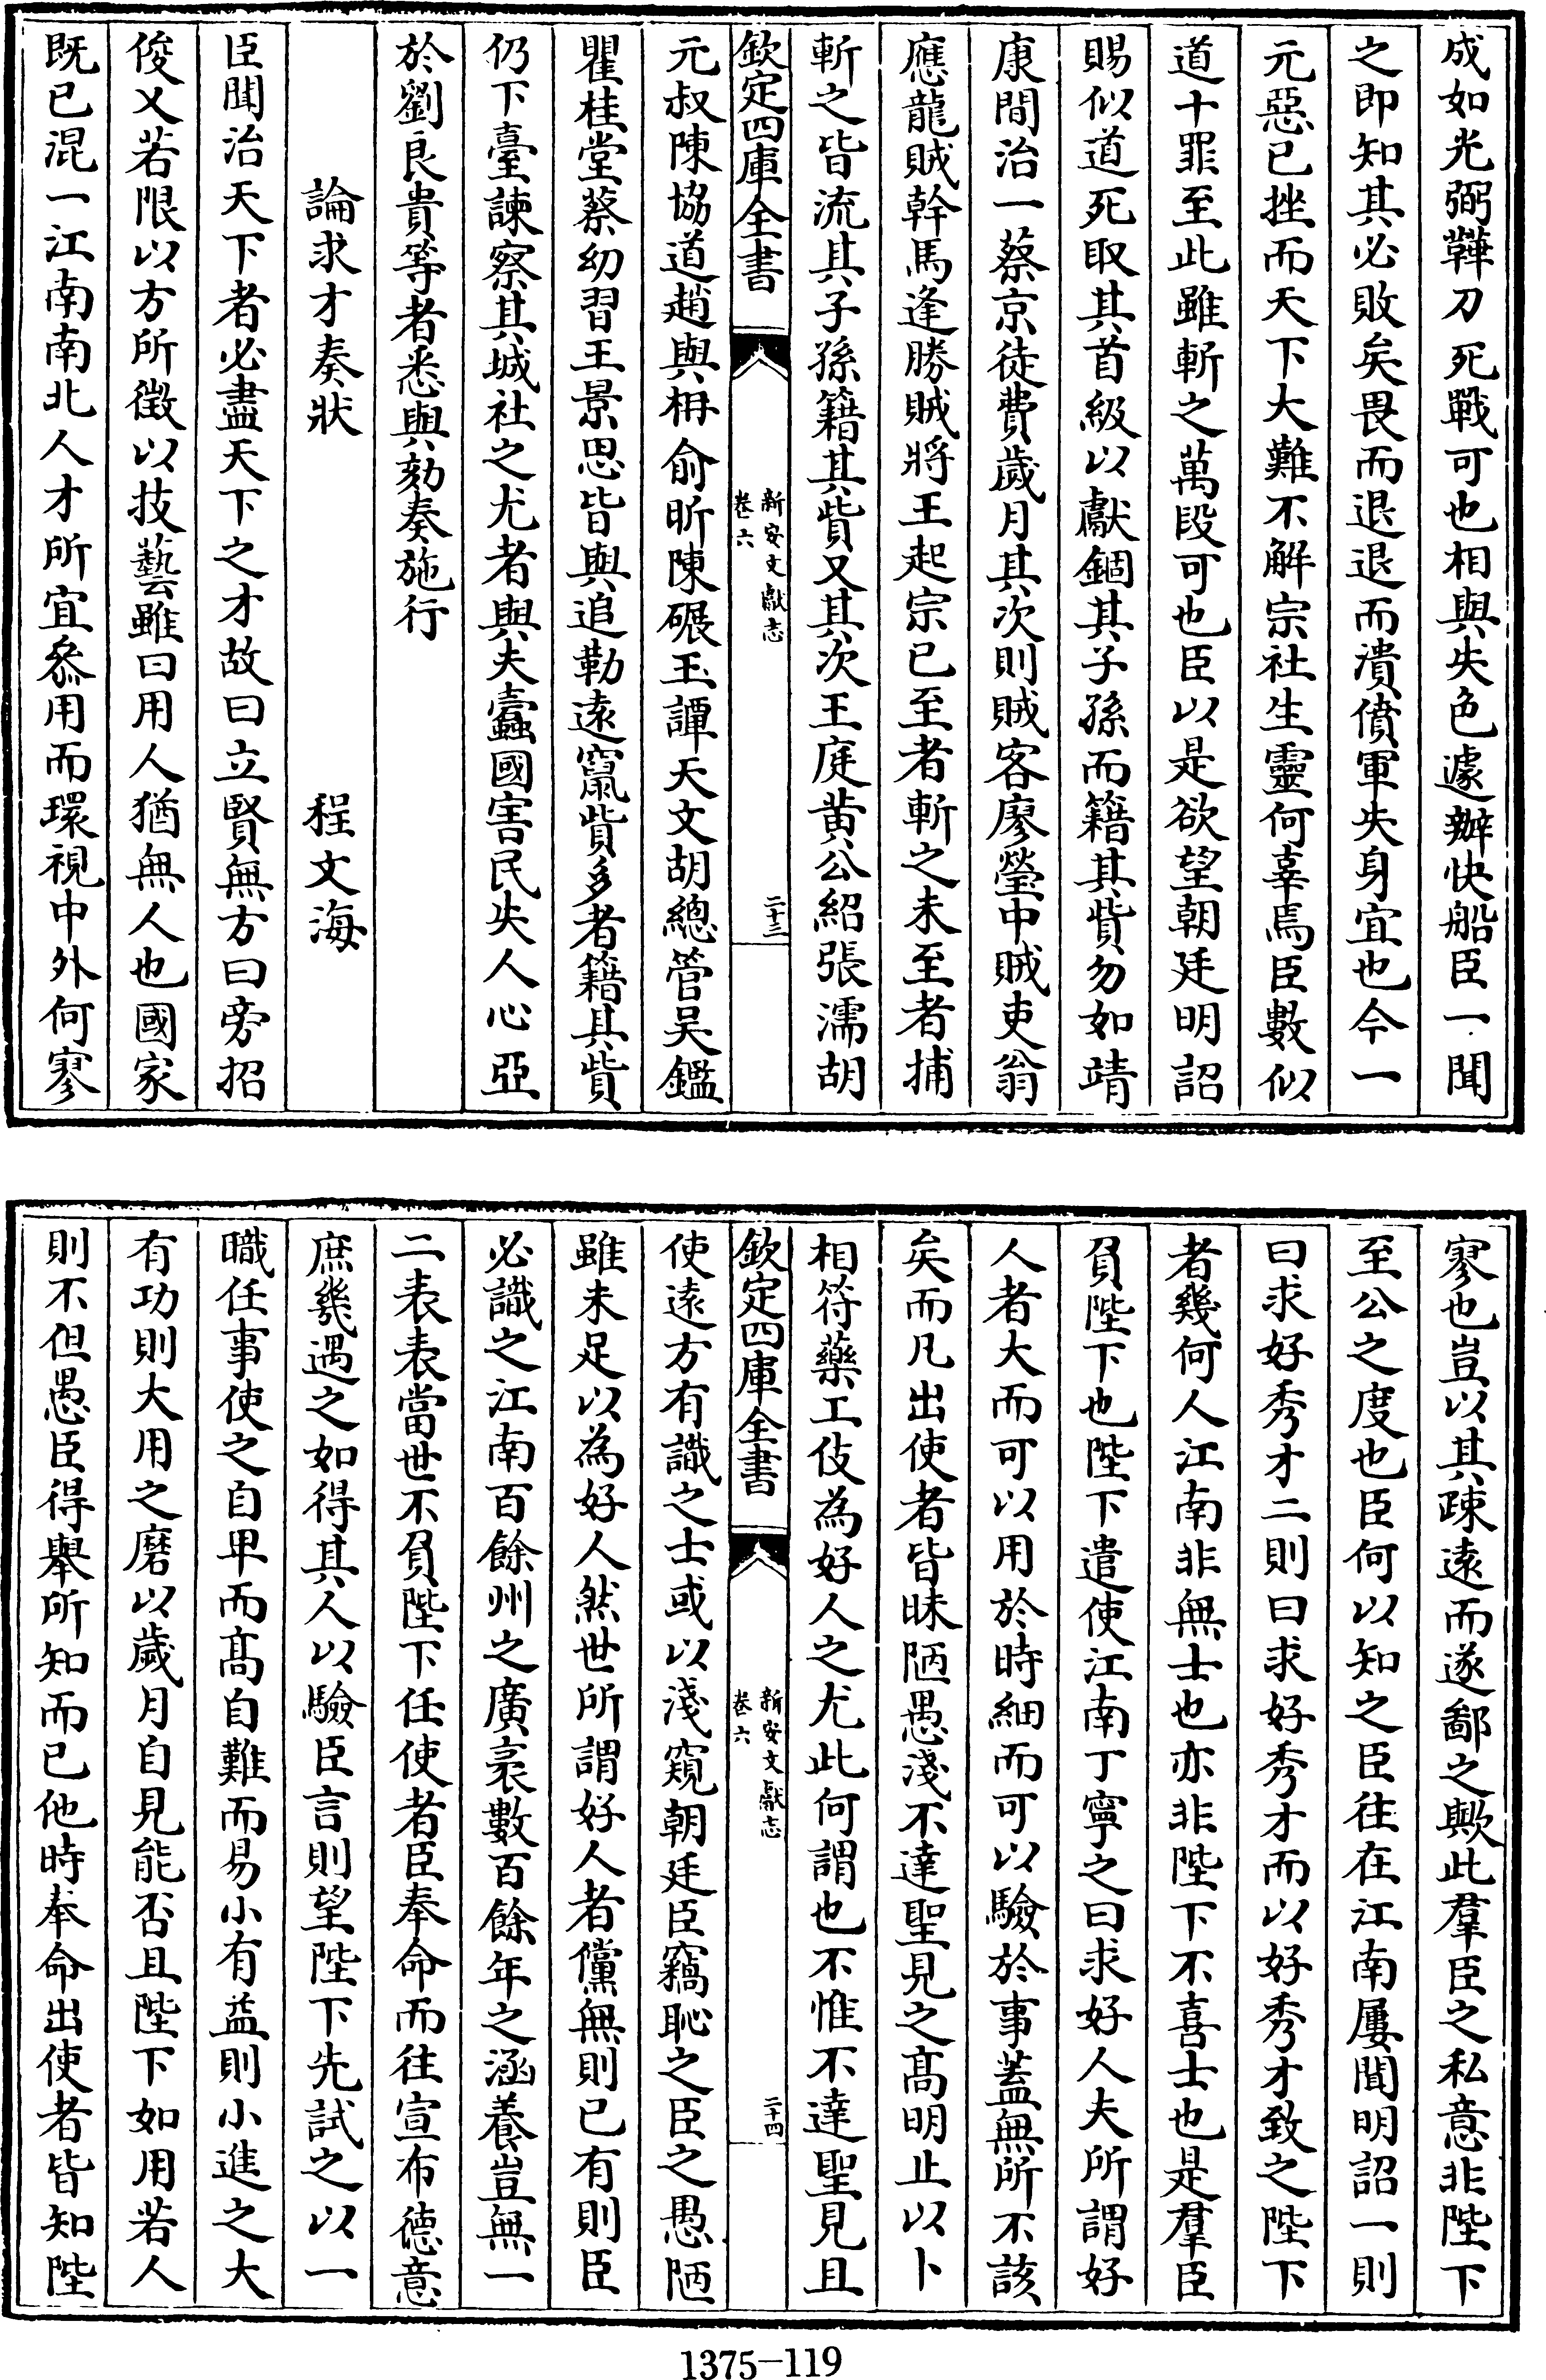 成如光弼鞾刀死戰可也相與失色遽辦快船臣一聞
之即知其必敗矣畏而退退而潰僨軍失身宜也今一
元惡已挫而天下大難不解宗社生靈何辜焉臣數似
道十罪至此雖斬之萬段可也臣以是欲望朝廷明詔
賜似道死取其首級以獻錮其子孫而籍其貲勿如靖
康間治一蔡京徒費歲月其次則賊客廖瑩中賊吏翁
應龍賊幹馬逢勝賊將王起宗已至者斬之未至者捕
斬之皆流其子孫籍其貲又其次王庭黄公紹張濡胡
欽定四庫全書
新安文獻志
卷六
二十三
元叔陳協道趙與枏俞昕陳碾玉譚天文胡總管吴鑑
瞿桂堂蔡幼習王景思皆與追勒遠竄貲多者籍其貲
仍下臺諫察其城社之尤者與夫蠧國害民失人心亞
於劉良貴等者悉與劾奏施行
論求才奏狀　程文海
臣聞治天下者必盡天下之才故曰立賢無方曰旁招
俊乂若限以方所徴以技藝雖曰用人猶無人也國家
既已混一江南南北人才所宜叅用而環視中外何寥
寥也豈以其踈遠而遂鄙之歟此羣臣之私意非陛下
至公之度也臣何以知之臣往在江南屢聞明詔一則
曰求好秀才二則曰求好秀才而以好秀才致之陛下
者幾何人江南非無士也亦非陛下不喜士也是羣臣
負陛下也陛下遣使江南丁寧之曰求好人夫所謂好
人者大而可以用於時細而可以驗於事蓋無所不該
矣而凡出使者皆昧陋愚淺不達聖見之髙明止以卜
相符藥工伎為好人之尤此何謂也不惟不達聖見且
欽定四庫全書
新安文獻志
卷六
二十四
使遠方有識之士或以淺窺朝廷臣竊恥之臣之愚陋
雖未足以為好人然世所謂好人者儻無則已有則臣
必識之江南百餘州之廣袤數百餘年之涵養豈無一
二表表當世不負陛下任使者臣奉命而往宣布德意
庶幾遇之如得其人以驗臣言則望陛下先試之以一
職任事使之自卑而髙自難而易小有益則小進之大
有功則大用之磨以歲月自見能否且陛下如用若人
則不但愚臣得舉所知而已他時奉命出使者皆知陛
1375—119